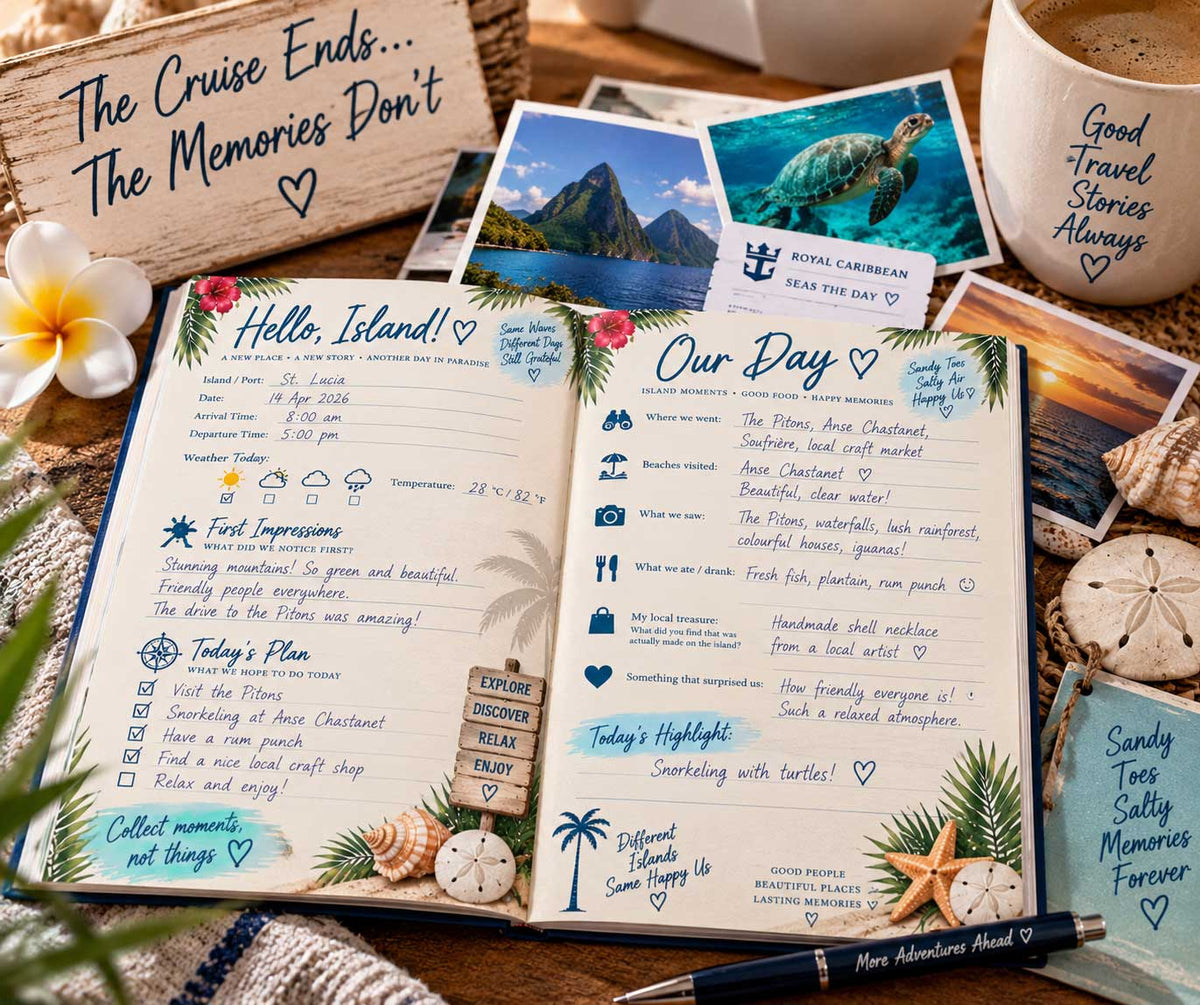 The Cruise Ends...
The Memories Don't
Good
Travel
Stories
Always
ROYAL CARIBBEAN
SEAS THE DAY
Hello, Island!
A NEW PLACE • A NEW STORY • ANOTHER DAY IN PARADISE
Same Waves
Different Days
Still Grateful
Island / Port: St. Lucia
Date: 14 Apr 2026
Arrival Time: 8:00 am
Departure Time: 5:00 pm
Weather Today:
Temperature: 28 °C / 82 °F
First Impressions
WHAT DID WE NOTICE FIRST?
Stunning mountains! So green and beautiful.
Friendly people everywhere.
The drive to the Pitons was amazing!
Today's Plan
WHAT WE HOPE TO DO TODAY
Visit the Pitons
Snorkeling at Anse Chastanet
Have a rum punch
Find a nice local craft shop
Relax and enjoy!
EXPLORE
DISCOVER
RELAX
ENJOY
Collect moments,
not things
Our Day
ISLAND MOMENTS • GOOD FOOD • HAPPY MEMORIES
Sandy Toes
Salty Air
Happy Us
Where we went: The Pitons, Anse Chastanet,
Soufrière, local craft market
Beaches visited: Anse Chastanet
Beautiful, clear water!
What we saw: The Pitons, waterfalls, lush rainforest,
colourful houses, iguanas!
What we ate / drank: Fresh fish, plantain, rum punch
My local treasure: Handmade shell necklace
What did you find that was
actually made on the island? from a local artist
Something that surprised us: How friendly everyone is!
Such a relaxed atmosphere.
Today's Highlight:
Snorkeling with turtles!
Different
Islands
Same Happy Us
GOOD PEOPLE
BEAUTIFUL PLACES
LASTING MEMORIES
Sandy
Toes
Salty
Memories
Forever
More Adventures Ahead